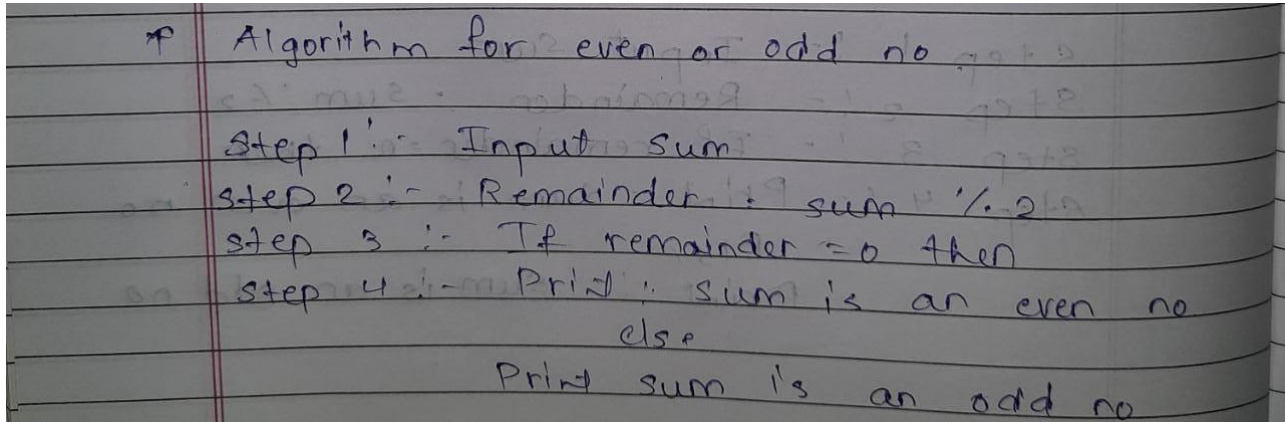 * Algorithm for even or odd no.
Step 1 :- Input sum
step 2 :- Remainder : sum % 2
step 3 :- If remainder = 0 then
step 4 :- Print : sum is an even no
else
Print sum is an odd no